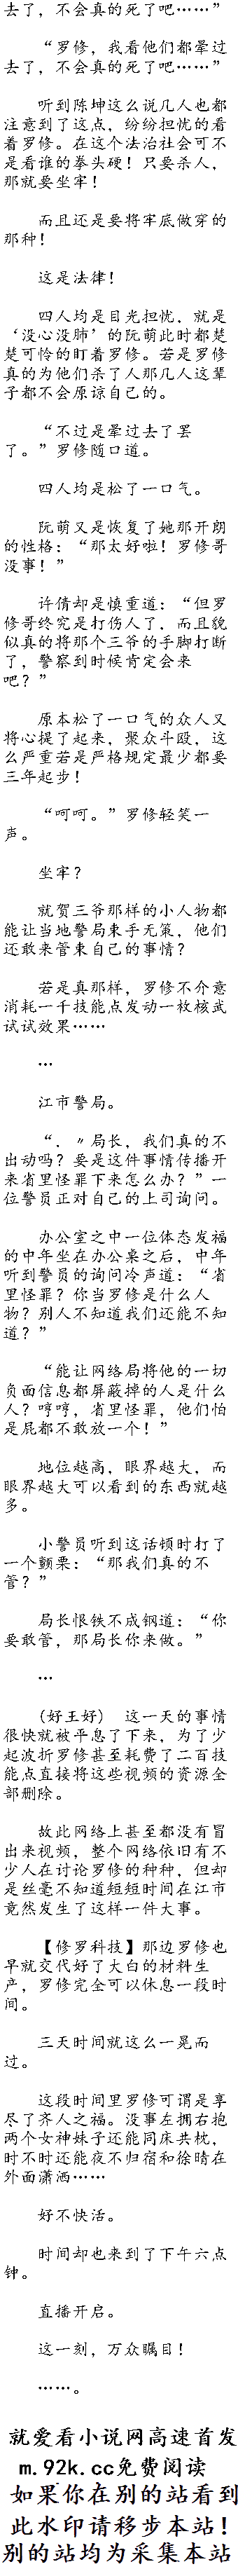 去了，不会真的死了吧……”
“罗修，我看他们都晕过
去了，不会真的死了吧……”
听到陈坤这么说几人也都
注意到了这点，纷纷担忧的看
着罗修。在这个法治社会可不
是看谁的拳头硬！只要杀人，
那就要坐牢！
而且还是要将牢底做穿的
那种！
这是法律！
四人均是目光担忧，就是
‘没心没肺’的阮萌此时都楚
楚可怜的盯着罗修。若是罗修
真的为他们杀了人那几人这辈
子都不会原谅自己的。
“不过是晕过去了罢
了。”罗修随口道。
四人均是松了一口气。
阮萌又是恢复了她那开朗
的性格：“那太好啦！罗修哥
没事！”
许倩却是慎重道：“但罗
修哥终究是打伤人了，而且貌
似真的将那个三爷的手脚打断
了，警察到时候肯定会来
吧？”
原本松了一口气的众人又
将心提了起来，聚众斗殴，这
么严重若是严格规定最少都要
三年起步！
“呵呵。”罗修轻笑一
声。
坐牢？
就贺三爷那样的小人物都
能让当地警局束手无策，他们
还敢来管束自己的事情？
若是真那样，罗修不介意
消耗一千技能点发动一枚核武
试试效果……
…
江市警局。
“．〃局长，我们真的不
出动吗？要是这件事情传播开
来省里怪罪下来怎么办？”一
位警员正对自己的上司询问。
办公室之中一位体态发福
的中年坐在办公桌之后，中年
听到警员的询问冷声道：“省
里怪罪？你当罗修是什么人
物？别人不知道我们还能不知
道？”
“能让网络局将他的一切
负面信息都屏蔽掉的人是什么
人？哼哼，省里怪罪，他们怕
是屁都不敢放一个！”
地位越高，眼界越大，而
眼界越大可以看到的东西就越
多。
小警员听到这话顿时打了
一个颤栗：“那我们真的不
管？”
局长恨铁不成钢道：“你
要敢管，那局长你来做。”
…
（好王好） 这一天的事情
很快就被平息了下来，为了少
起波折罗修甚至耗费了二百技
能点直接将这些视频的资源全
部删除。
故此网络上甚至都没有冒
出来视频，整个网络依旧有不
少人在讨论罗修的种种，但却
是丝毫不知道短短时间在江市
竟然发生了这样一件大事。
【修罗科技】那边罗修也
早就交代好了大白的材料生
产，罗修完全可以休息一段时
间。
三天时间就这么一晃而
过。
这段时间里罗修可谓是享
尽了齐人之福。没事左拥右抱
两个女神妹子还能同床共枕，
时不时还能夜不归宿和徐晴在
外面潇洒……
好不快活。
时间却也来到了下午六点
钟。
直播开启。
这一刻，万众瞩目！
……。
就爱看小说网高速首发
m.92k.cc免费阅读
如果你在别的站看到
此水印请移步本站！
别的站均为采集本站